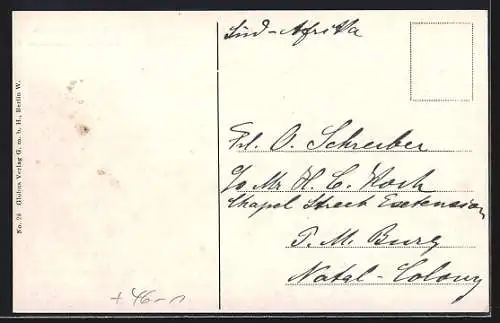 Süd-Afrika
Frl. O. Schreiber
c/o Mr H. C. Koch
Chapel Street Exetension
P. M. Burg
Natal-Colony
No. 26 Globus Verlag G. m. b. H., Berlin W.
+ 46-